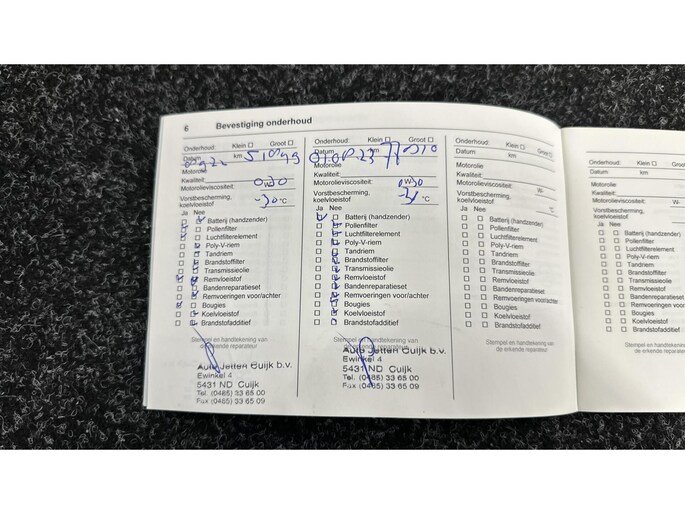 6 Bevestiging onderhoud
Onderhoud: Klein ☐ Groot ☐
Datum km
Motorolie
Kwaliteit
Motorolieviscositeit: 0W30
Vorstbescherming,
koelvloeistof -30 °C
Ja Nee
Batterij (handzender)
Pollenfilter
Luchtfilterelement
Poly-V-riem
Tandriem
Brandstoffilter
Transmissieolie
Remvloeistof
Bandenreparatieset
Remvoeringen voor/achter
Bougies
Koelvloeistof
Brandstofadditief
Stempel en handtekening van
de erkende reparateur
Auto Jetten Cuijk b.v.
Ewinkel 4
5431 ND Cuijk
Tel. (0485) 33 65 00
Fax (0485) 33 65 09
Onderhoud: Klein ☐ Groot ☐
Datum km
Motorolie
Kwaliteit:
Motorolieviscositeit: 0W30
Vorstbescherming,
koelvloeistof °C
Ja Nee
Batterij (handzender)
Pollenfilter
Luchtfilterelement
Poly-V-riem
Tandriem
Brandstoffilter
Transmissieolie
Remvloeistof
Bandenreparatieset
Remvoeringen voor/achter
Bougies
Koelvloeistof
Brandstofadditief
Auto Jetten Cuijk b.v.
Ewinkel 4
5431 ND Cuijk
Tel. (0485) 33 65 00
Fax (0485) 33 65 09
Onderhoud: Klein ☐ Groot ☐
Datum km
Motorolie
Kwaliteit:
Motorolieviscositeit: W-
Vorstbescherming,
koelvloeistof °C
Ja Nee
Batterij (handzender)
Pollenfilter
Luchtfilterelement
Poly-V-riem
Tandriem
Brandstoffilter
Transmissieolie
Remvloeistof
Bandenreparatieset
Remvoeringen voor/achter
Bougies
Koelvloeistof
Brandstofadditief
Stempel en handtekening van
de erkende reparateur
Onderhoud: Klein ☐ Groot
Datum: km
Motorolie
Kwaliteit:
Motorolieviscositeit: W-
Vorstbescherming,
koelvloeistof
Ja Nee
Batterij (handzender)
Pollenfilter
Luchtfilterelement
Poly-V-riem
Tandriem
Brandstoffilter
Transmissieolie
Remvloeistof
Bandenreparatieset
Remvoeringen voor/achter
Bougies
Koelvloeistof
Brandstofadditief
Stempel en handtekening van
de erkende reparateur